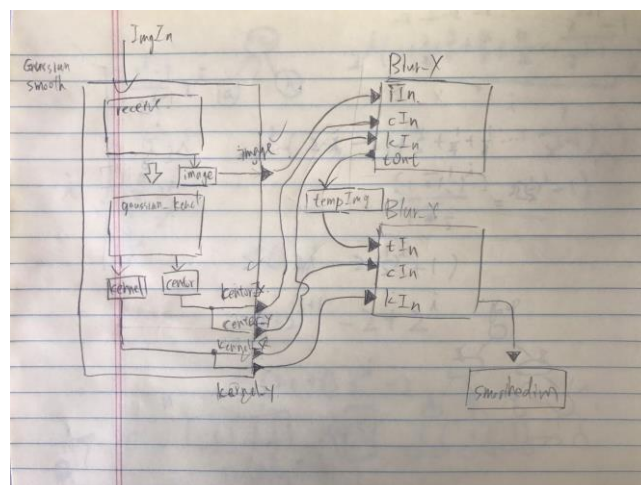 ImgIn
Gaussian
smooth
receive
image
gaussian_kernel
kernel
center
centerX
center_Y
kernel_X
kernel_Y
Blur_X
iIn
cIn
kIn
tOut
tempImg
Blur_Y
tIn
cIn
kIn